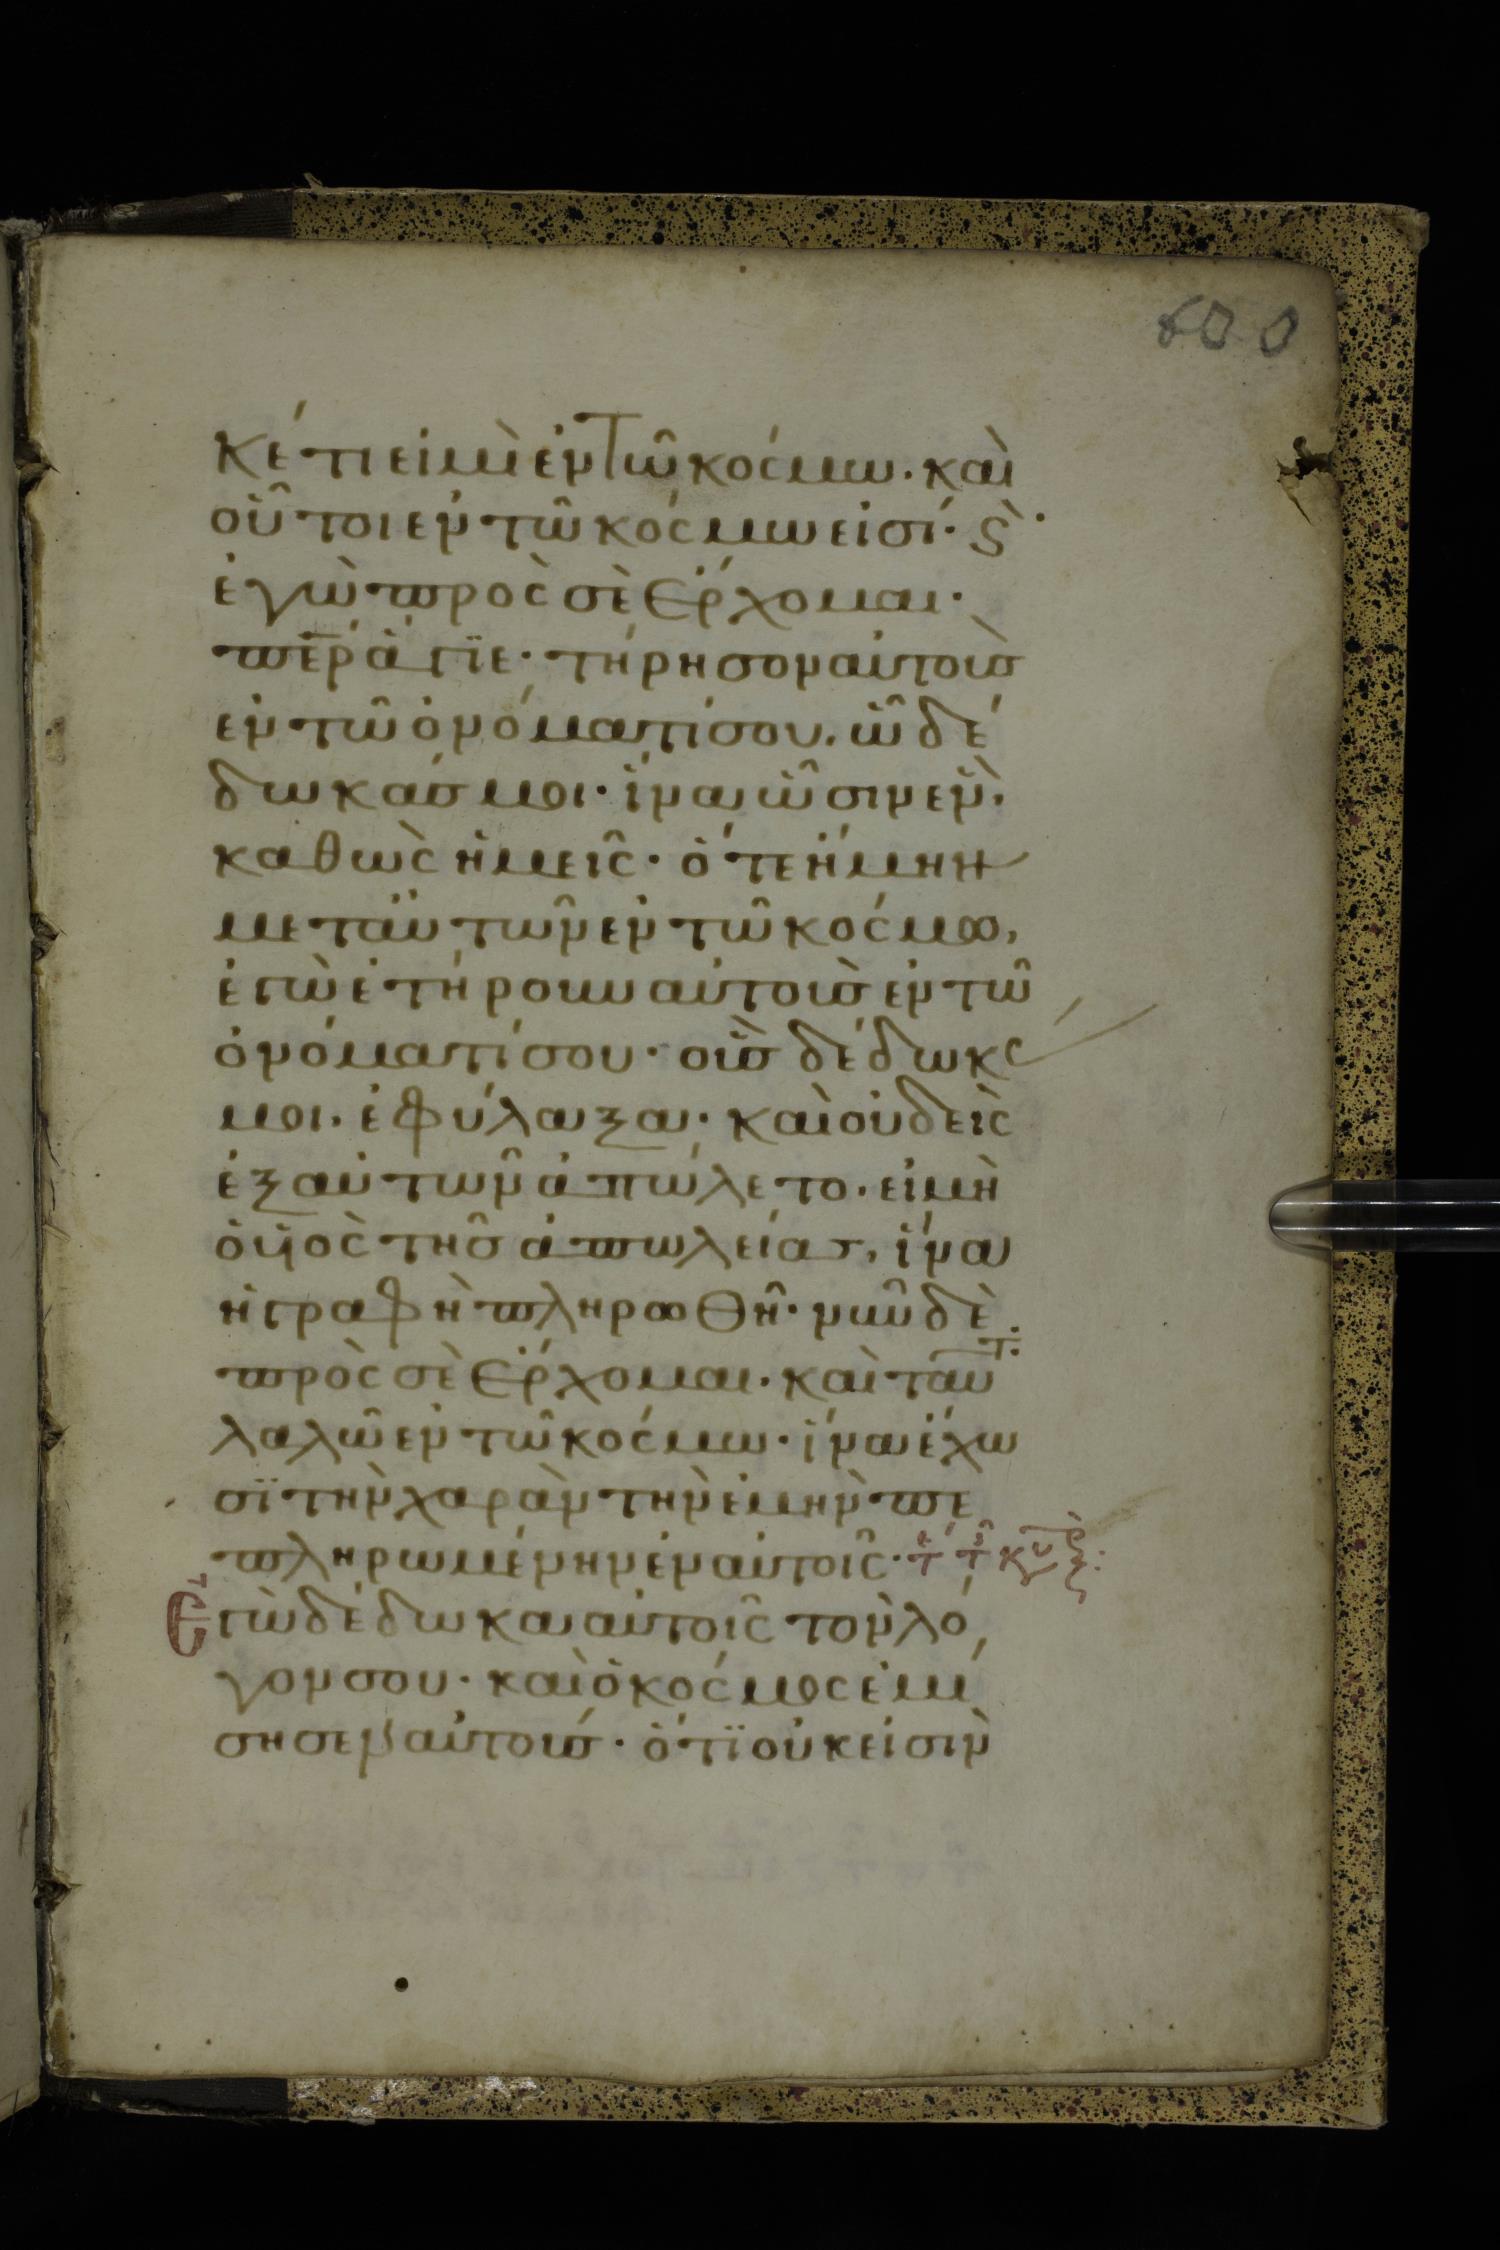 600
κέτι εἰμὶ ἐν τῶ κόσμω. καὶ
οὗτοι ἐν τῶ κόσμω εἰσί· ϗ̀
ἐγὼ πρὸς σὲ ἔρχομαι·
πε̅ρ ἅγϊε· τήρησον αὐτοὺσ
ἐν τῶ ὀνόματί σου. ὧ δέ
δωκάσ μοι· ἵνα ὦσιν ἓν,
καθὼς ἡμεῖς· ὅτε ἤμην
μετ αὐτῶν ἐν τῶ κόσμω,
ἐγὼ ἐτήρουν αὐτοὺσ ἐν τῶ
ὀνόματί σου· οὓσ δέδωκς
μοι. ἐφύλαξα· καὶ οὐδεὶς
ἐξ αὐτῶν ἀπώλετο. εἰ μὴ
ὁ υἱὸς τῆσ ἀπωλείασ, ἵνα
ἡ γραφὴ πληρωθῆ· νῦν δὲ
πρὸς σὲ ἔρχομαι. καὶ ταῦτ
λαλῶ ἐν τῶ κόσμω· ἵνα ἔχω
σϊ τὴν χαρὰν τὴν ἐμὴν πε
πληρωμένην ἐν αὐτοῖς·
Ἐγὼ δέδωκα αὐτοῖς τὸν λό
γον σου· καὶ ὁ κόσμος ἐμί
σησεν αὐτούσ· ὅτϊ οὐκ εἰσὶν